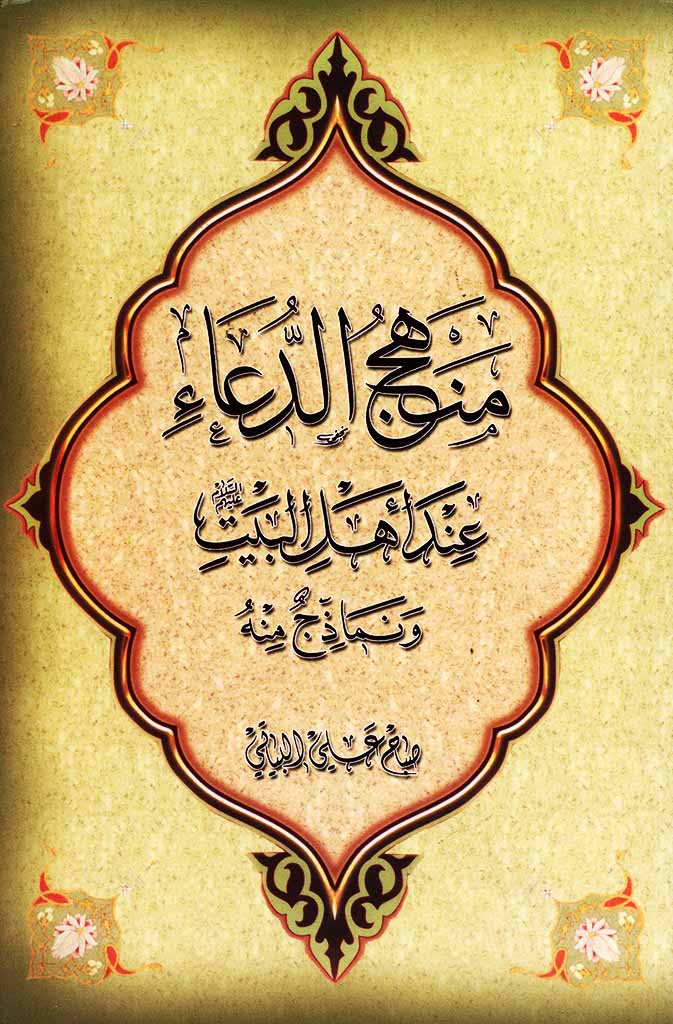 مَنْهَجُ الدُّعَاءِ
عِنْدَ أَهْلِ الْبَيْتِ عليهم السلام
وَنَمَاذِجُ مِنْهُ
صباح علي البياتي